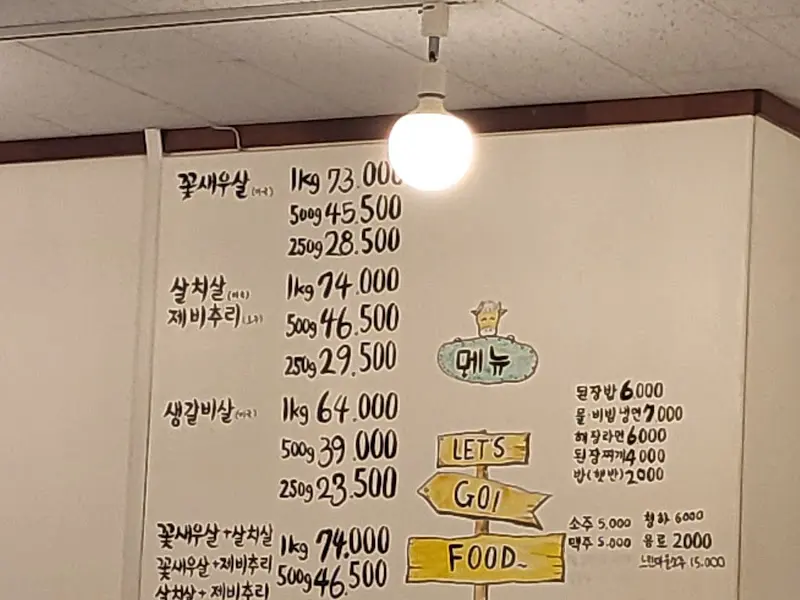 꽃새우살(미국) 1kg 73.000
500g 45.500
250g 28.500
살치살(미국) 1kg 74.000
제비추리(호주) 500g 46.500
250g 29.500
생갈비살(미국) 1kg 64.000
500g 39.000
250g 23.500
꽃새우살+살치살 1kg 74.000
꽃새우살+제비추리 500g 46.500
살치살+제비추리
메뉴
LET'S
GO!
FOOD~
된장밥 6.000
물·비빔냉면 7000
해장라면 6000
된장찌개 4000
밥(햇반) 2000
소주 5.000 청하 6000
맥주 5.000 음료 2000
느린마을소주 15.000